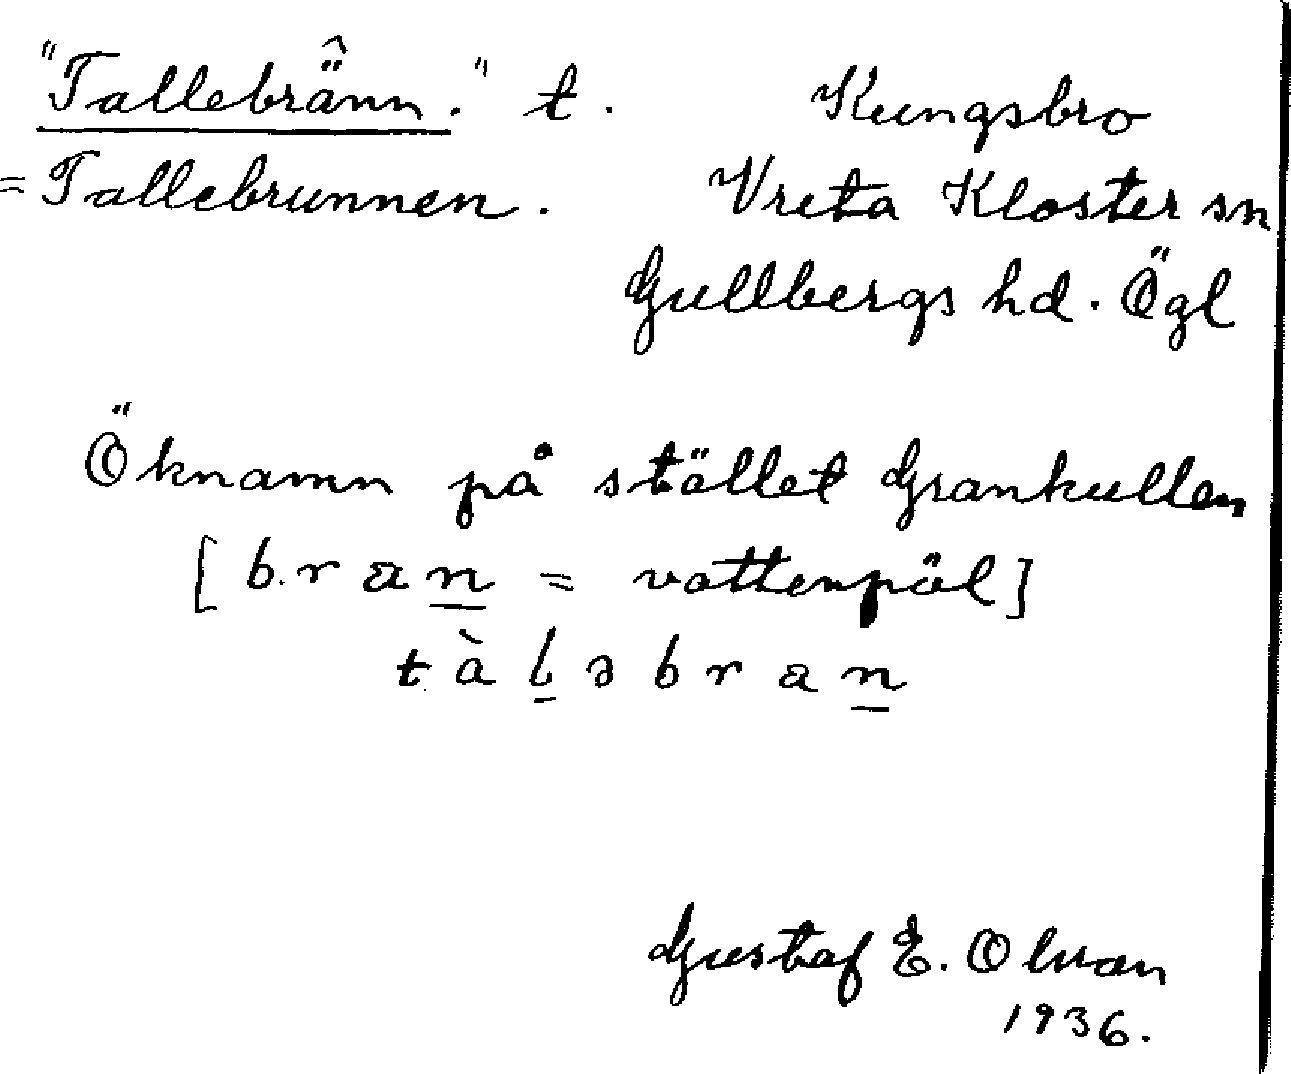 "Tallebränn." t. Kungsbro
= Tallebrunnen. Vreta Kloster sn
Gullbergs hd. Ögl
Öknamn på stället Grankullen
[ b r a n = vattenpöl ]
t à l ə b r a n
Gustaf E. Olvan
1936.